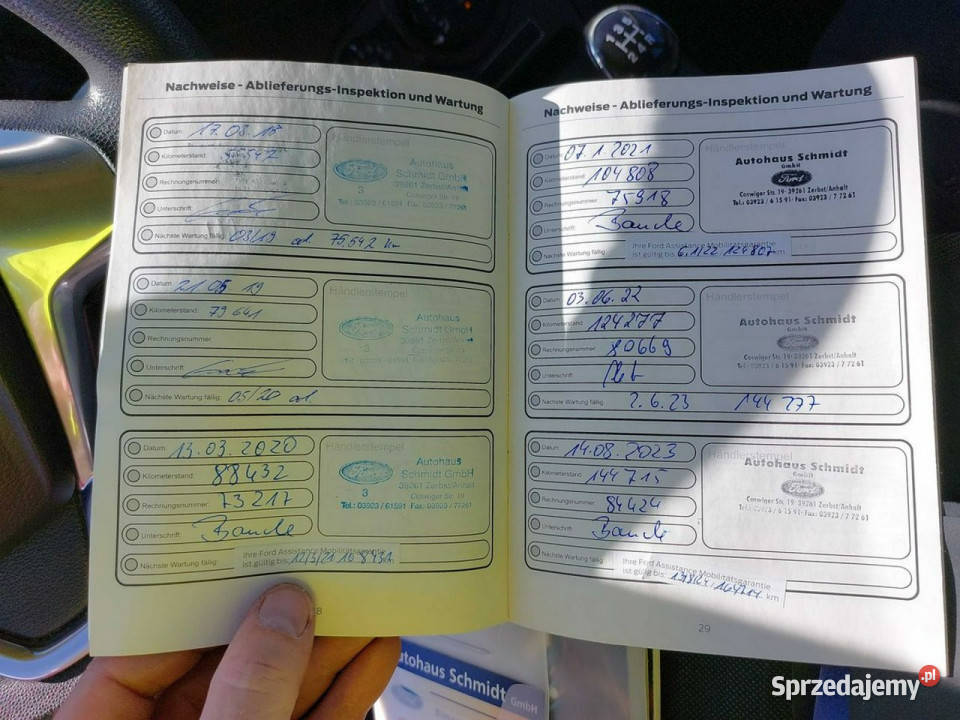 Nachweise - Ablieferungs-Inspektion und Wartung
Datum: 17.08.18
Kilometerstand: 55542
Rechnungsnummer:
Unterschrift:
Nächste Wartung fällig: 08/19 od. 75.542 km
Händlerstempel
Ford
3
Autohaus
Schmidt GmbH
39261 Zerbst/Anhalt
Coswiger Str. 19
Tel.: 03923 / 61591 Fax: 03923 / 77261
Datum: 21.05 19
Kilometerstand: 79641
Rechnungsnummer:
Unterschrift:
Nächste Wartung fällig: 05/20 od.
Händlerstempel
Ford
3
Autohaus
Schmidt GmbH
39261 Zerbst/Anhalt
Datum: 13.03.2020
Kilometerstand: 88432
Rechnungsnummer: 73217
Unterschrift: Baude
Nächste Wartung fällig:
Ihre Ford Assistance Mobilitätsgarantie
ist gültig bis:
Händlerstempel
Ford
3
Autohaus
Schmidt GmbH
39261 Zerbst/Anhalt
Coswiger Str. 19
Tel.: 03923 / 61591 Fax: 03923 / 77261
Nachweise - Ablieferungs-Inspektion und Wartung
Datum: 07.1.2021
Kilometerstand: 104808
Rechnungsnummer: 75918
Unterschrift: Baude
Nächste Wartung fällig:
Ihre Ford Assistance Mobilitätsgarantie
ist gültig bis: 6.1/22 124807 km
Händlerstempel
Autohaus Schmidt
GmbH
Ford
Coswiger Str. 19 · 39261 Zerbst/Anhalt
Tel.: 03923 / 6 15 91 · Fax: 03923 / 7 72 61
Datum: 03.06.22
Kilometerstand: 124277
Rechnungsnummer: 80669
Unterschrift:
Nächste Wartung fällig: 2.6.23 144 277
Händlerstempel
Autohaus Schmidt
GmbH
Ford
Coswiger Str. 19 · 39261 Zerbst/Anhalt
Tel.: 03923 / 6 15 91 · Fax: 03923 / 7 72 61
Datum: 14.08.2023
Kilometerstand: 144715
Rechnungsnummer: 84624
Unterschrift: Baude
Nächste Wartung fällig:
Ihre Ford Assistance Mobilitätsgarantie
ist gültig bis: km
Händlerstempel
Autohaus Schmidt
GmbH
Ford
Coswiger Str. 19 · 39261 Zerbst/Anhalt
Tel.: 03923 / 6 15 91 · Fax: 03923 / 7 72 61
29
utohaus Schmidt
GmbH
Sprzedajemy.pl